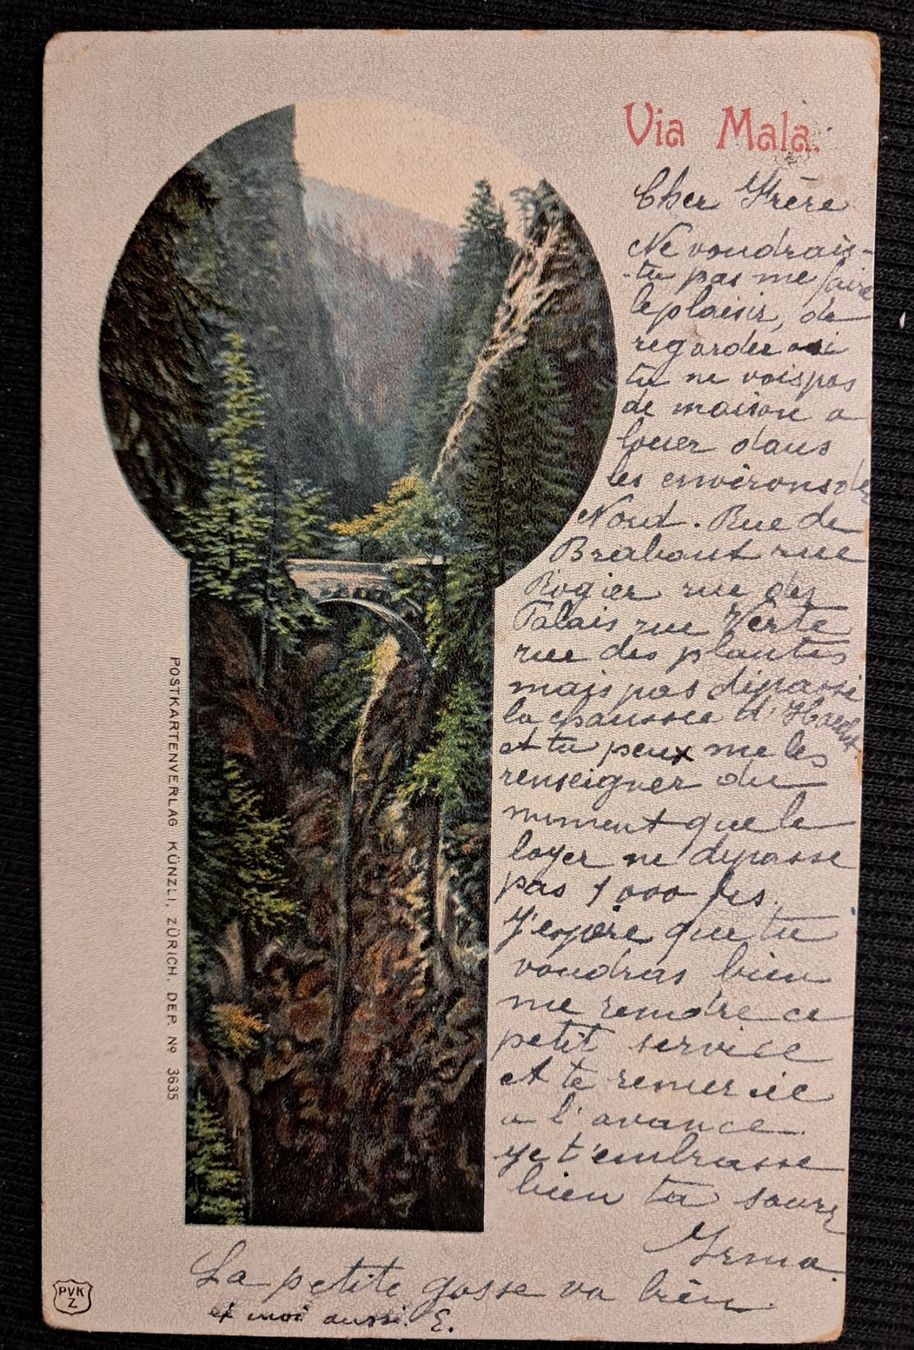 Via Mala.
Cher Frère
Ne voudrais-
-tu pas me faire
le plaisir, de
regarder si
tu ne vois pas
de maison a
louer dans
les environs de
Nord. Rue de
Brabant rue
Rogier rue des
Palais rue Verte
rue des plantes
mais pas dépassé
la chaussée d'Haecht
et tu peux me les
renseigner du
moment que le
loyer ne dépasse
pas 1000 frs.
J'espère que tu
voudras bien
me rendre ce
petit service
et te remercie
a l'avance
je t'embrasse
bien ta sœur
Irma.
La petite gosse va bien.
et moi aussi. E.
POSTKARTENVERLAG KÜNZLI, ZÜRICH. DEP. No 3635
PVK
Z